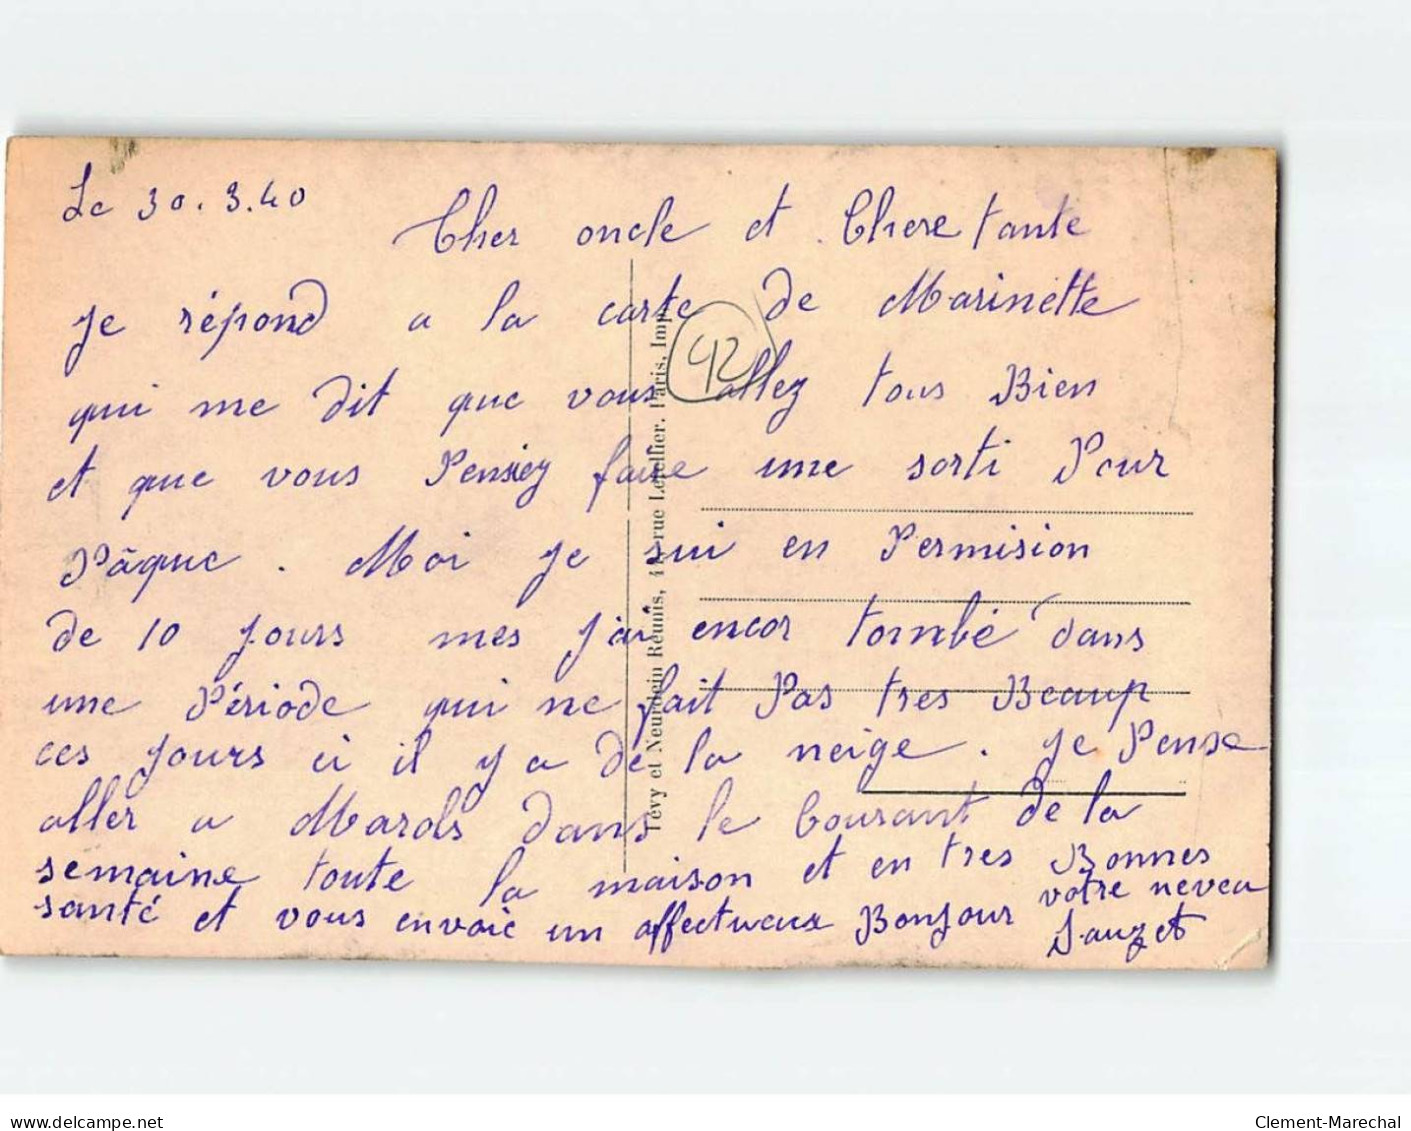 Le 30.3.40
Cher oncle et Chere tante
je répond a la carte de Marinette
qui me dit que vous allez tous Bien
et que vous Pensiez faire une sorti Pour
Pâque. Moi je sui en Permision
de 10 jours mes j'ai encor tombé dans
une Période qui ne fait Pas tres Beaup
ces jours ci il y a de la neige. je Pense
aller a Marols dans le Courant de la
semaine toute la maison et en tres Bonnes
santé et vous envoie un affectueux Bonjour votre neveu
Sauzet
42
Lévy et Neurdein Réunis, 44, rue Letellier, Paris, Imp.
www.delcampe.net
Clement-Marechal